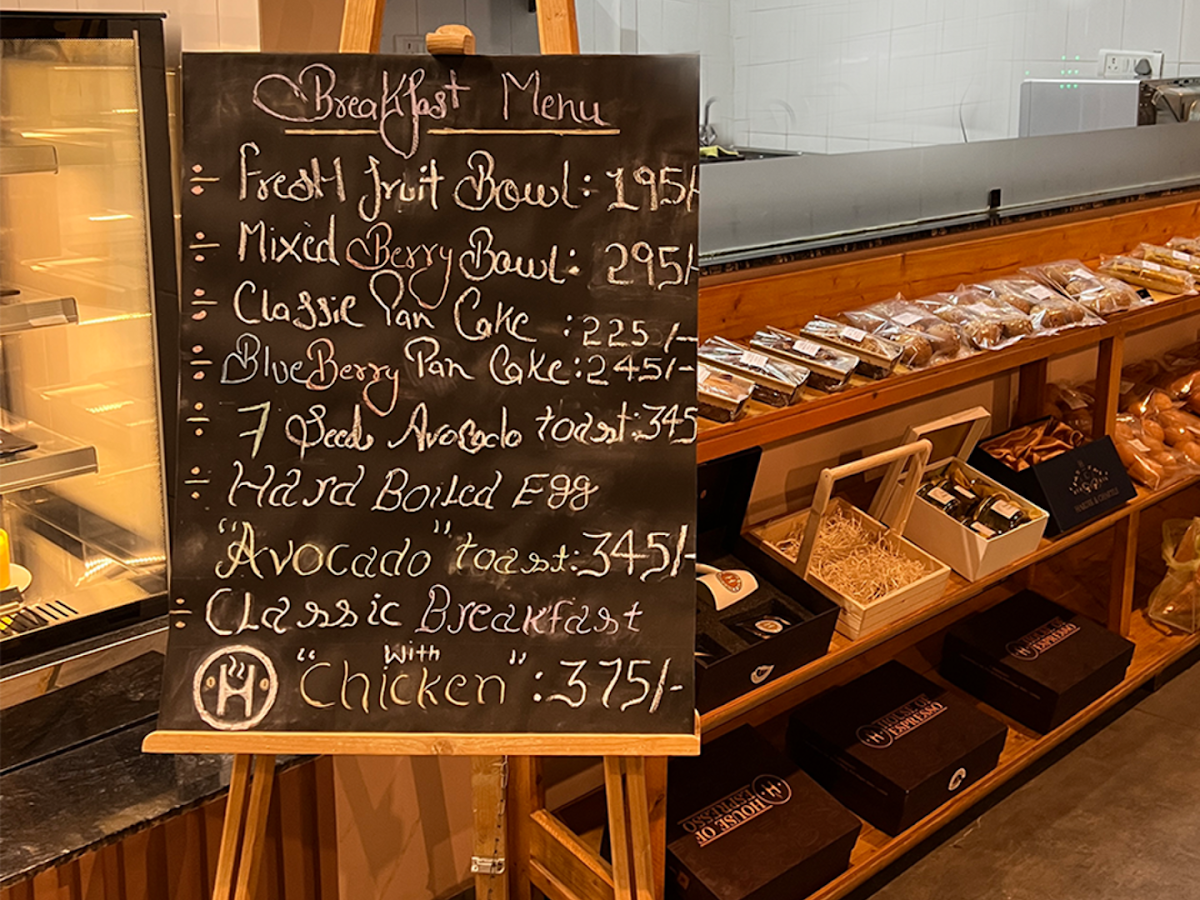 Breakfast Menu
÷ Fresh fruit Bowl: 195/
÷ Mixed Berry Bowl: 295/
÷ Classic Pan Cake :225/-
÷ BlueBerry Pan Cake:245/-
÷ 7 Seeds Avocado toast:345
÷ Hard Boiled Egg
"Avocado" toast:345/-
÷ Classic Breakfast
With
H "Chicken" :375/-
H HOUSE OF ESPRESSO
H HOUSE OF ESPRESSO
H HOUSE OF ESPRESSO